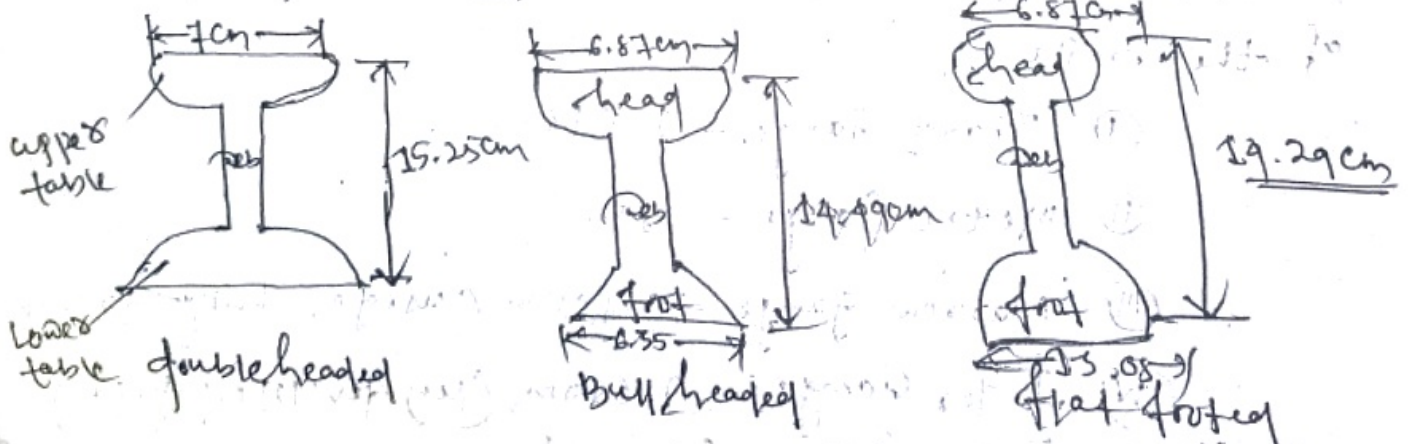 7cm
upper
table
web
15.25cm
Lower
table
doubleheaded
6.87cm
head
web
14.49cm
foot
6.35
Bull headed
6.87cm
head
web
14.29cm
foot
13.08
flat footed